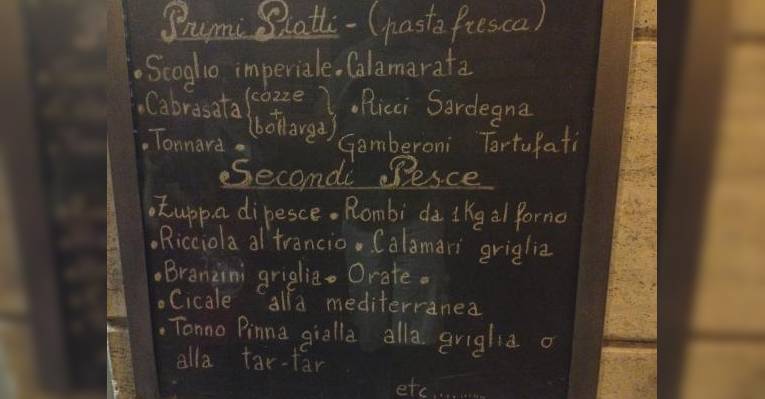 Primi Piatti - (pasta fresca)
• Scoglio imperiale • Calamarata
• Cabrasata (cozze + bottarga) • Ricci Sardegna
• Tonnara • Gamberoni Tartufati
Secondi Pesce
• Zuppa di pesce • Rombi da 1Kg al forno
• Ricciola al trancio • Calamari griglia
• Branzini griglia • Orate •
• Cicale alla mediterranea
• Tonno Pinna gialla alla griglia o
alla tar-tar
etc..........